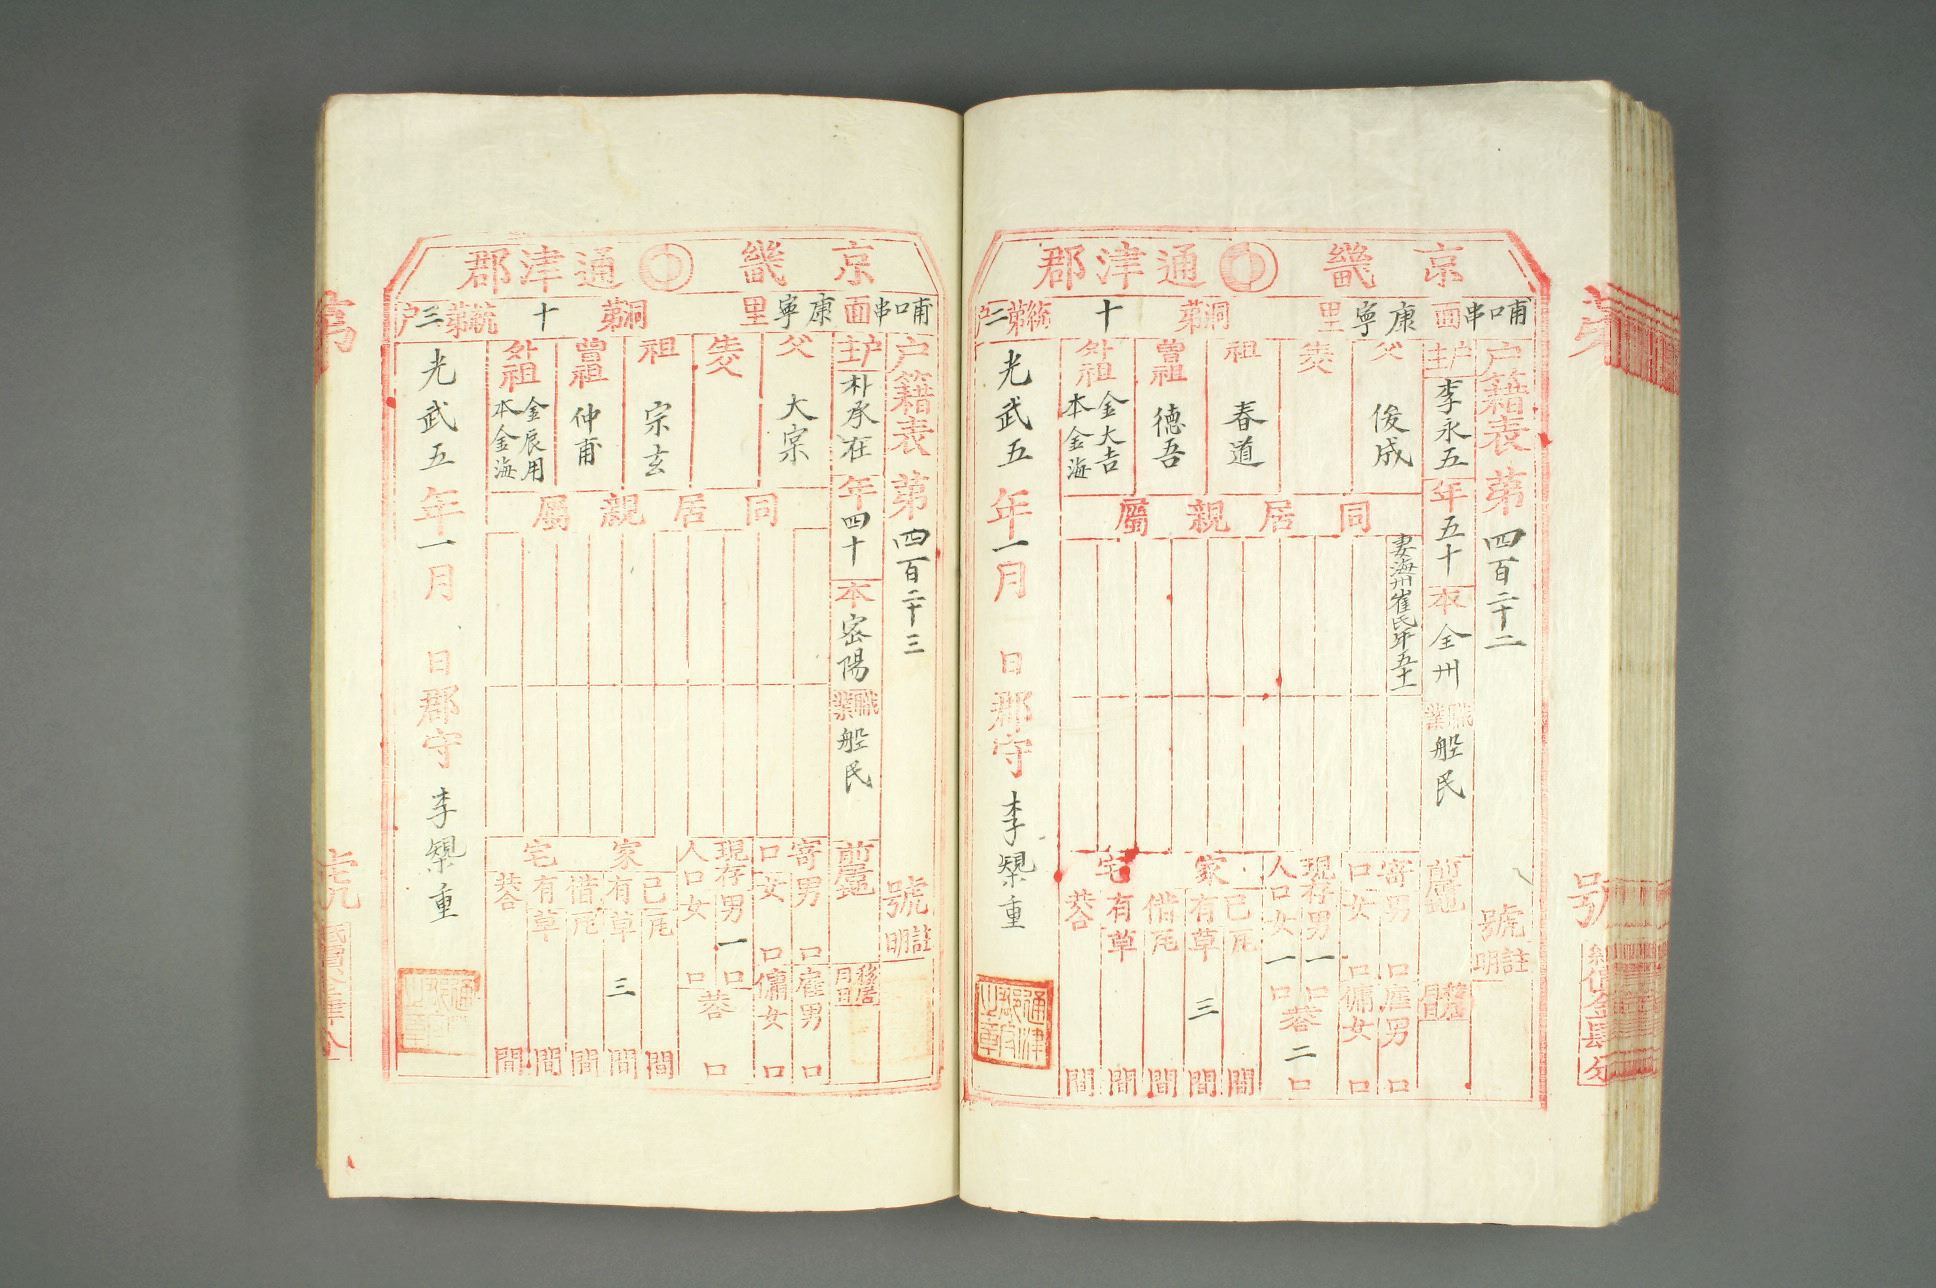 京畿 通津郡
哺口串面 康寧里 洞第 十 統第二户
户籍表 第 四百二十二 號 註明
户主 李永五 年 五十 本 全州 職業 船民 前居地 移居月日
父 俊成
生父
祖 春道
曾祖 德吾
外祖 金大吉 本金海
同居親屬
妻海州崔氏年五十一
寄口 男 口 女 口
雇男 口 傭女 口
現存人口 男 一 口 女 一 口 共合 二 口
家宅 已有 瓦 間 草 三 間
借有 瓦 間 草 間
共合 間
光武五年一月 日 郡守 李榘重
京畿 通津郡
哺口串面 康寧里 洞第 十 統第三户
户籍表 第 四百二十三 號 註明
户主 朴承在 年 四十 本 密陽 職業 船民 前居地 移居月日
父 大宗
生父
祖 宗玄
曾祖 仲甫
外祖 金辰用 本金海
同居親屬
寄口 男 口 女 口
雇男 口 傭女 口
現存人口 男 一 口 女 口 共合 口
家宅 已有 瓦 間 草 三 間
借有 瓦 間 草 間
共合 間
光武五年一月 日 郡守 李榘重